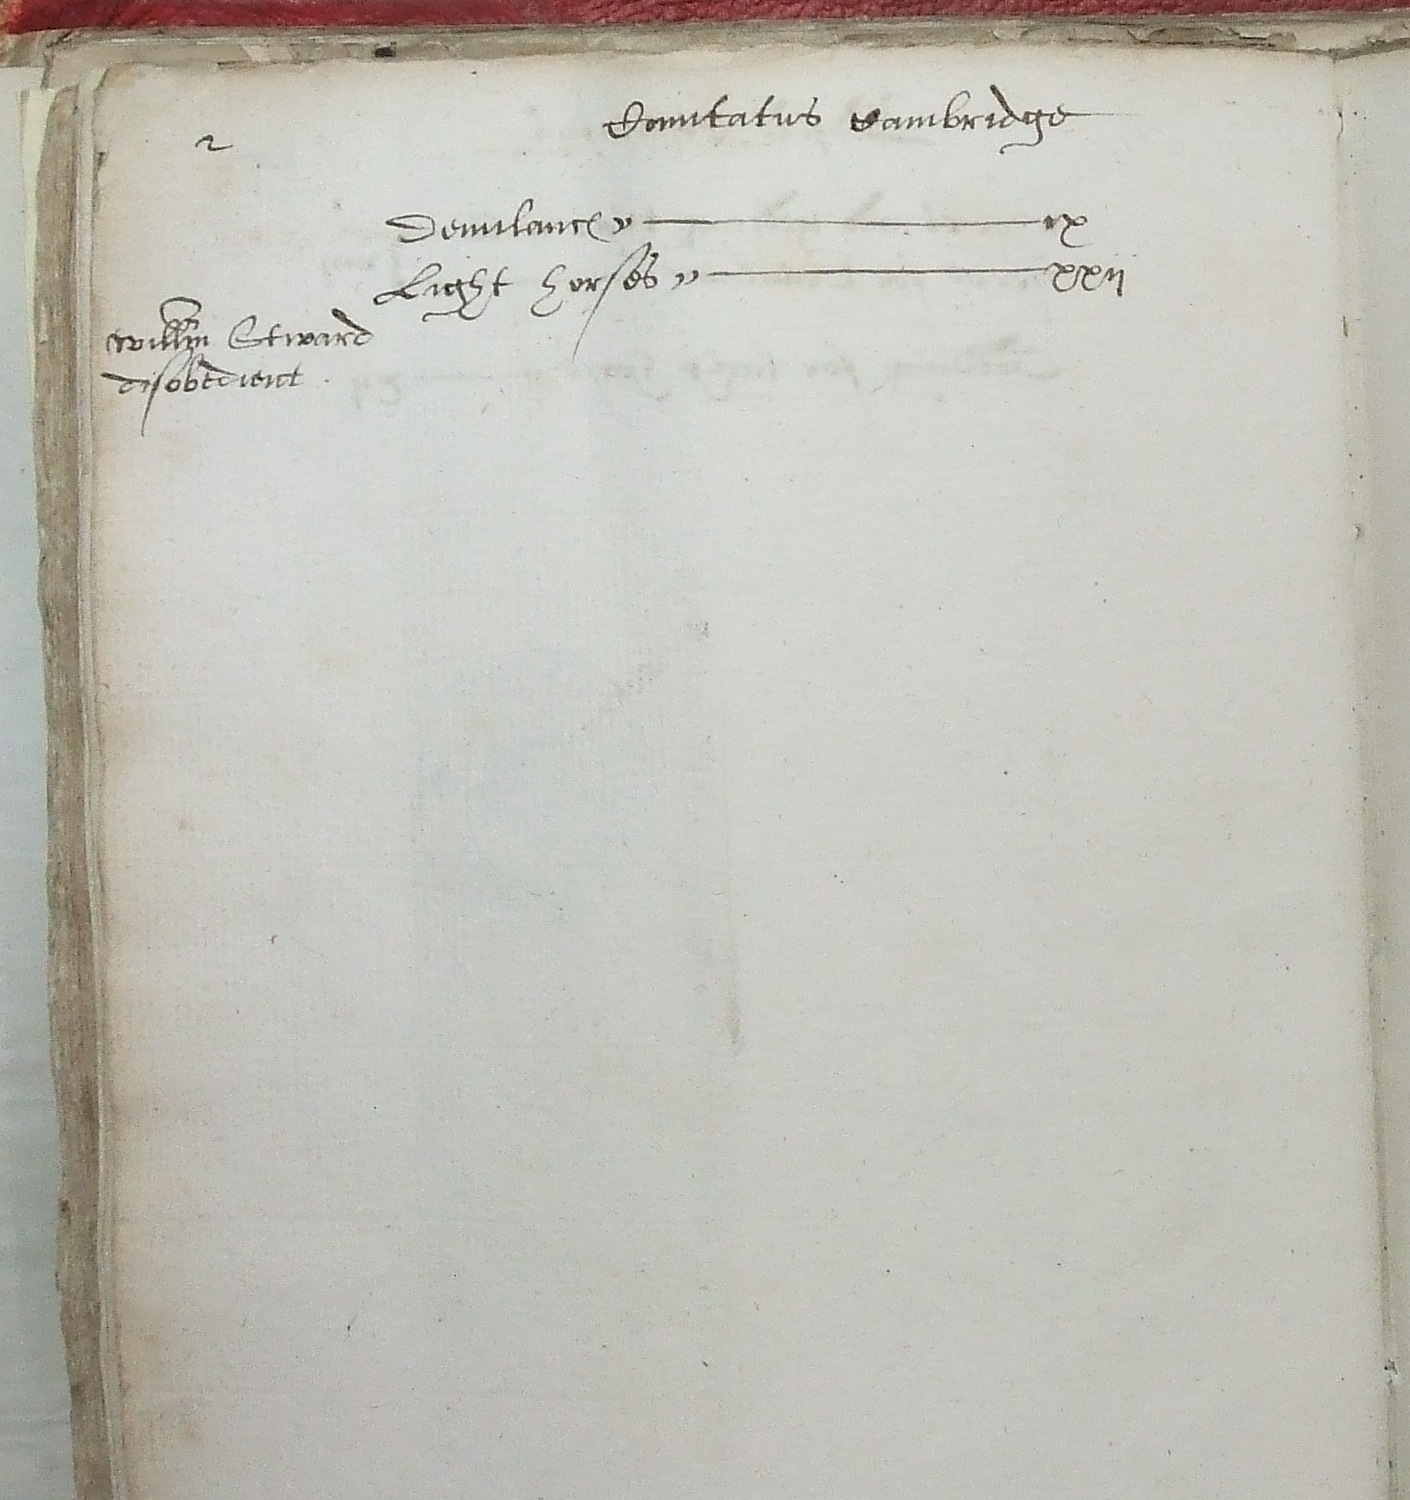 2
Comitatus Cambridge
Demilances ix
Light horses xxij
Willm Steward
disobedient .